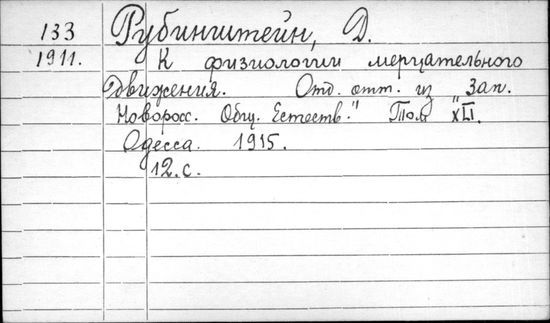 133 Рубинштейн, Д.
1911. К физиологии мерцательного
движения. Отд. отт. из "Зап.
Новоросс. Общ. Естеств." Том XLI.
Одесса. 1915.
12.с.